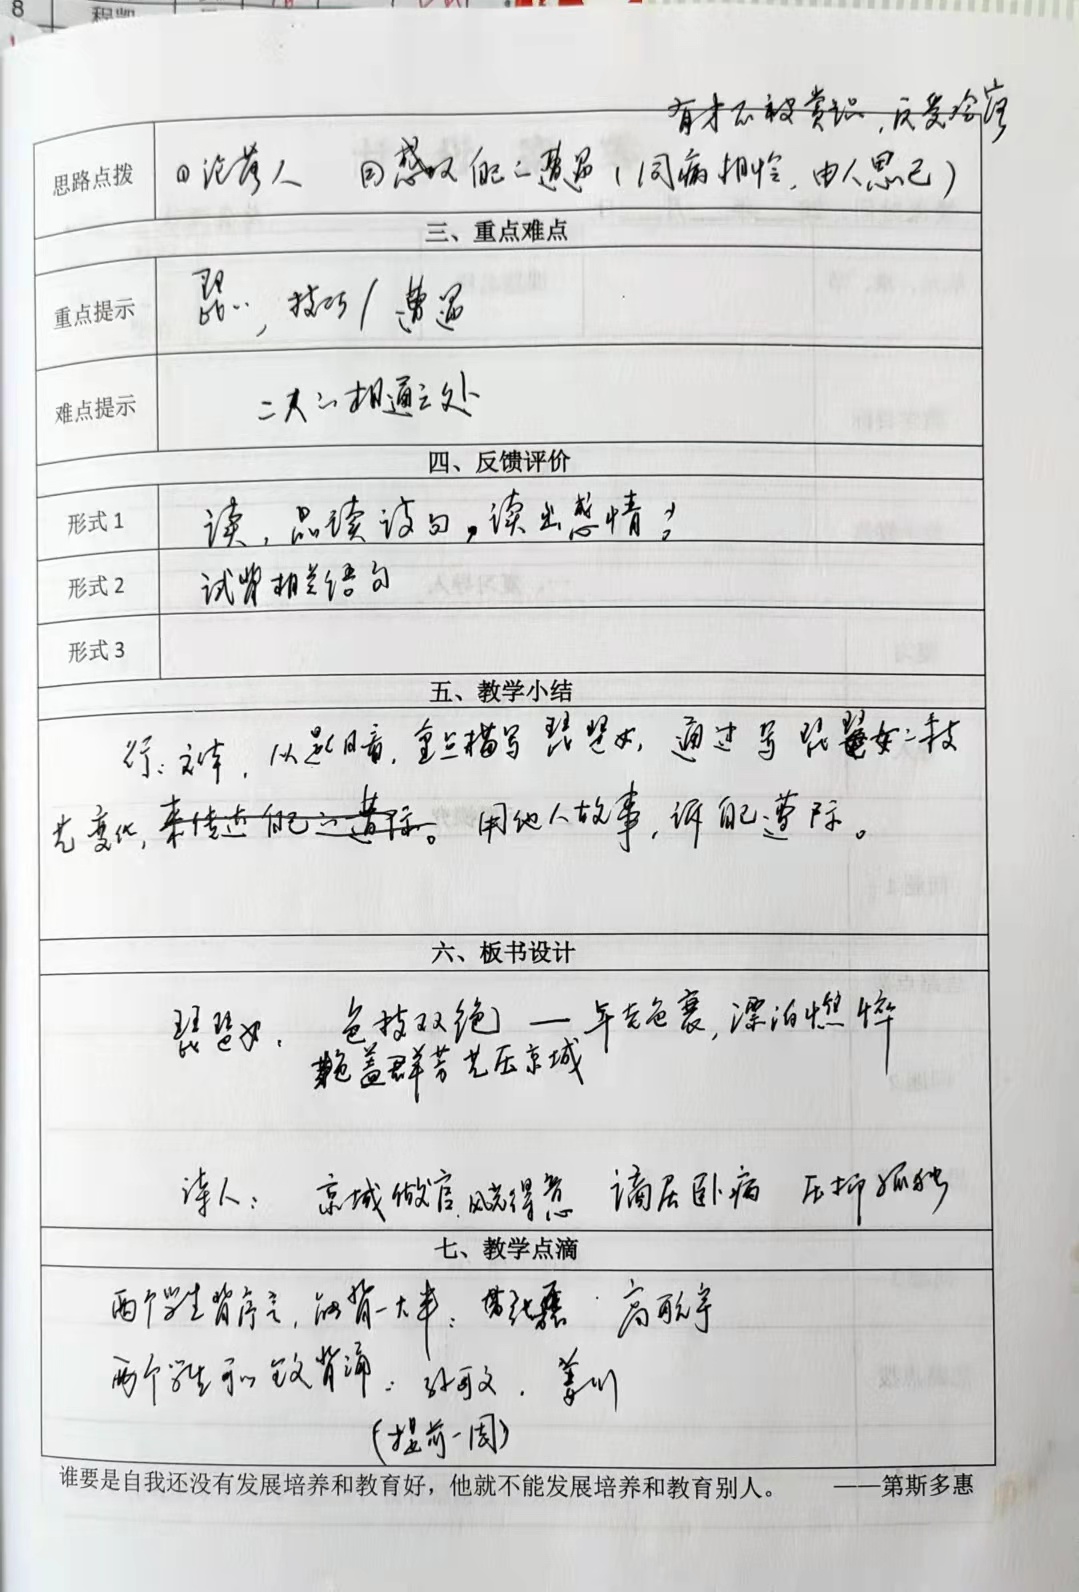 8
有才不被赏识，反受冷落
思路点拨 ①沦落人 ②感叹自己之遭遇（同病相怜，由人思己）
三、重点难点
重点提示 琵..，技巧/遭遇
难点提示 二人之相通之处
四、反馈评价
形式1 读，品读诗句，读出感情；
形式2 试背相关语句
形式3
五、教学小结
行：文本，以 暗，重点描写琵琶女，通过写琵琶女之技
艺变化，来传达自己之遭际。用他人故事，诉自己遭际。
六、板书设计
琵琶女：色技双绝——年老色衰，漂泊憔悴
艳盖群芳 艺压京城
诗人：京城做官，风光得意 谪居卧病 压抑孤独
七、教学点滴
两个学生背序言，能背一大半： 高
两个学生可以全文背诵：孙可文，姜川
（提前一周）
谁要是自我还没有发展培养和教育好，他就不能发展培养和教育别人。 ——第斯多惠